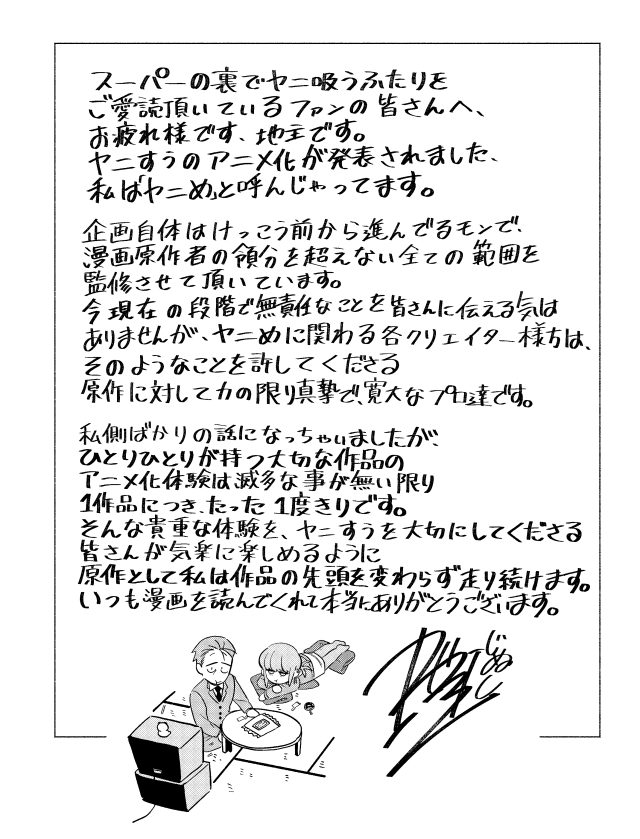 スーパーの裏でヤニ吸うふたりを
ご愛読頂いているファンの皆さんへ、
お疲れ様です、地主です。
ヤニすうのアニメ化が発表されました、
私は「ヤニめ」と呼んじゃってます。
企画自体はけっこう前から進んでるモンで、
漫画原作者の領分を超えない全ての範囲を
監修させて頂いています。
今現在の段階で無責任なことを皆さんに伝える気は
ありませんが、ヤニめに関わる各クリエイター様方は、
そのようなことを許してくださる
原作に対して力の限り真摯で、寛大なプロ達です。
私側ばかりの話になっちゃいましたが、
ひとりひとりが持つ大切な作品の
アニメ化体験は滅多な事が無い限り
1作品につき、たった1度きりです。
そんな貴重な体験を、ヤニすうを大切にしてくださる
皆さんが気楽に楽しめるように
原作として私は作品の先頭を変わらず走り続けます。
いつも漫画を読んでくれて本当にありがとうございます。
じぬし